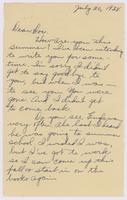 July 20, 1938
Dear Roy,
How are you this
summer? I've been intending
to write you for some
time. I'm sorry I didn't
get to say goodby to
you, but when I went
to see you you were
gone and I didn't get
to come back.
Do you see
very often? She said
he was going to summer
school. I wish I was,
but I've got to work
so I can come up this
fall or start in on the
books again.